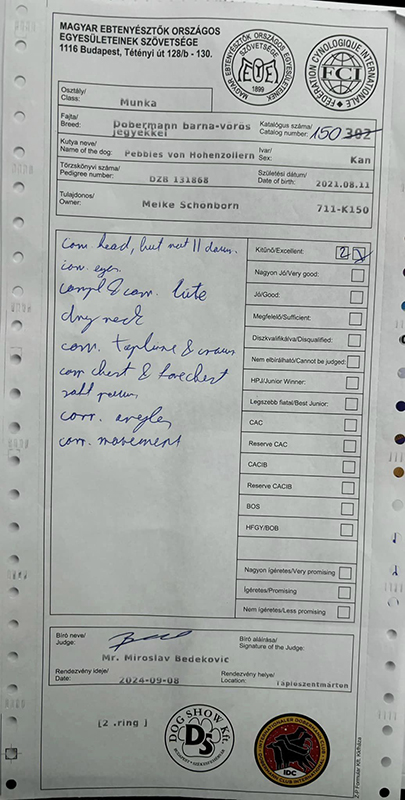 MAGYAR EBTENYÉSZTŐK ORSZÁGOS
EGYESÜLETEINEK SZÖVETSÉGE
1116 Budapest, Tétényi út 128/b - 130.
MAGYAR EBTENYÉSZTŐK ORSZÁGOS EGYESÜLETEINEK SZÖVETSÉGE
1899
FEDERATION CYNOLOGIQUE INTERNATIONALE
FCI
Osztály/
Class: Munka
Fajta/
Breed: Dobermann barna-vörös
jegyekkel
Katalógus száma/
Catalog number: 150 382
Kutya neve/
Name of the dog: Pebbles von Hohenzollern
Ivar/
Sex: Kan
Törzskönyvi száma/
Pedigree number: DZB 131868
Születési dátum/
Date of birth: 2021.08.11
Tulajdonos/
Owner: Meike Schonborn 711-K150
corr. head, but not
corr. eyes
compl & corr. bite
dry neck
corr. topline &
corr chest & forechest
corr. angles
corr. movement
Kitűnő/Excellent: 2
Nagyon Jó/Very good:
Jó/Good:
Megfelelő/Sufficient:
Diszkvalifikálva/Disqualified:
Nem elbírálható/Cannot be judged:
HPJ/Junior Winner:
Legszebb fiatal/Best Junior:
CAC
Reserve CAC
CACIB
Reserve CACIB
BOS
HFGY/BOB
Nagyon ígéretes/Very promising
Ígéretes/Promising
Nem ígéretes/Less promising
Bíró neve/
Judge:
Mr. Miroslav Bedekovic
Bíró aláírása/
Signature of the Judge:
Rendezvény ideje/
Date: 2024-09-08
Rendezvény helye/
Location: Tápiószentmárton
[2 .ring ]
DOG SHOW Kft
DS
IDC
Z-P Formular Kft. Kisháza